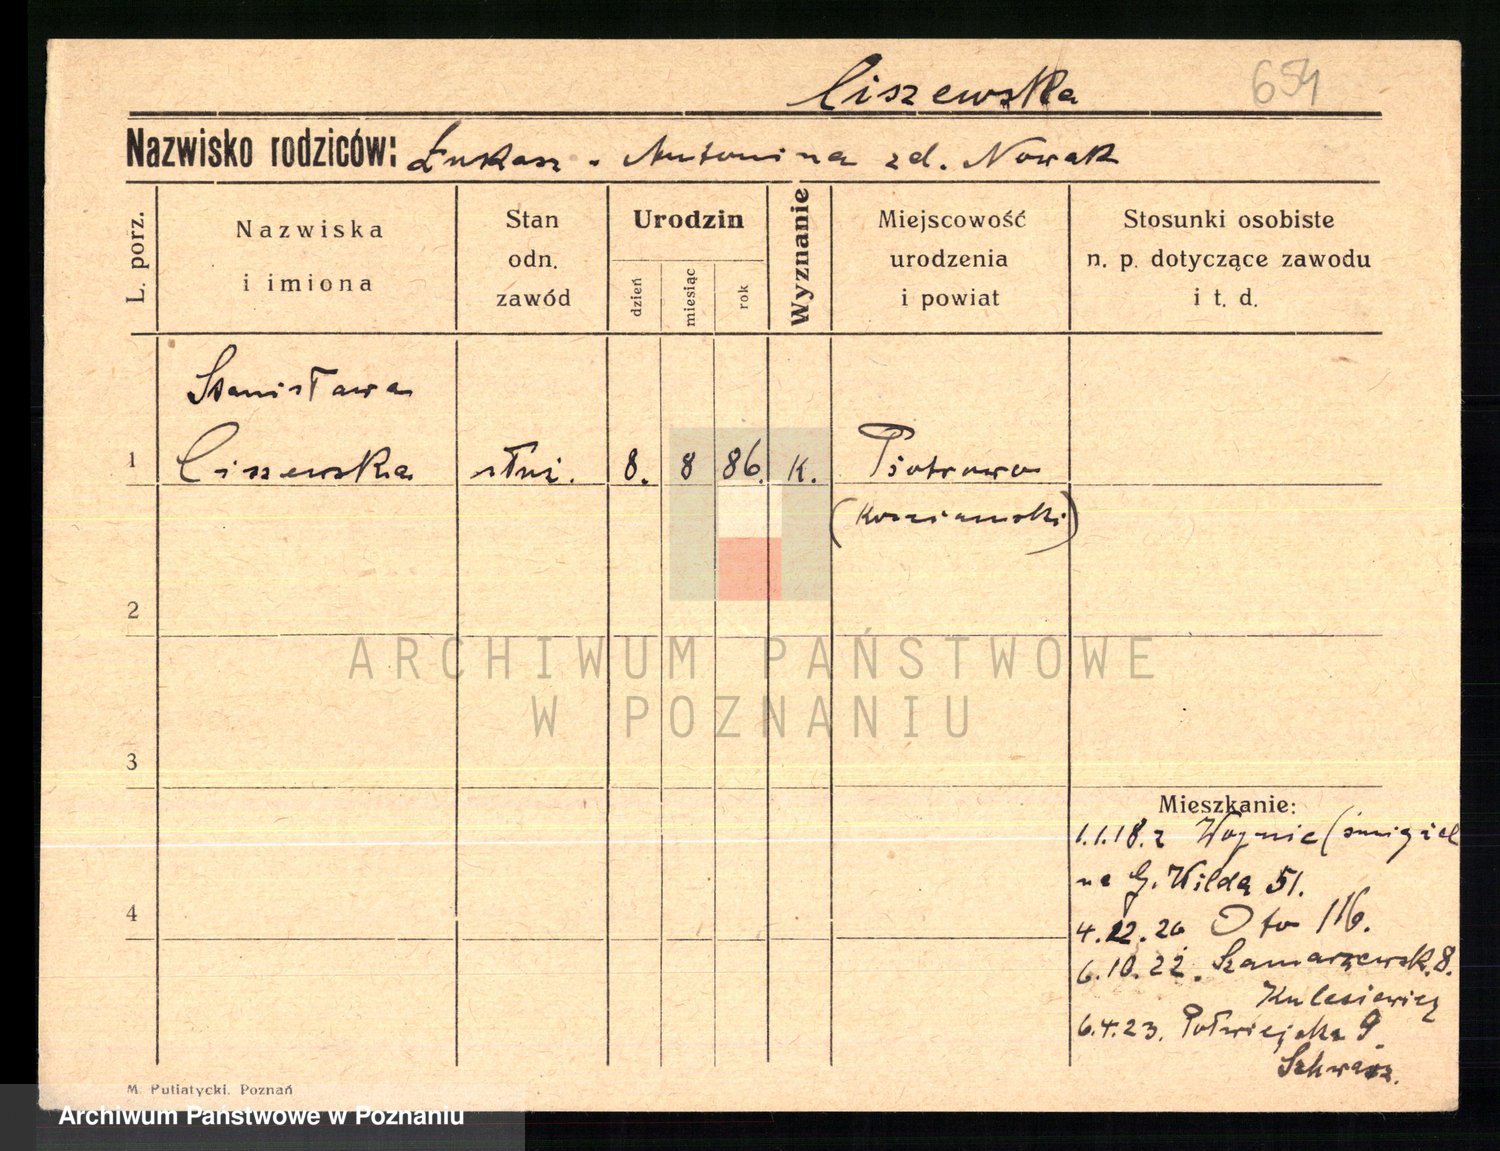 Ciszewska
654
Nazwisko rodziców: Łukasz - Antonina zd. Nowak
L. porz.
Nazwiska
i imiona
Stan
odn.
zawód
Urodzin
dzień
miesiąc
rok
Wyznanie
Miejscowość
urodzenia
i powiat
Stosunki osobiste
n. p. dotyczące zawodu
i t. d.
Stanisława
1 Ciszewska służ. 8. 8 86. K. Piotrowo
(Kościański)
2
ARCHIWUM PAŃSTWOWE
W POZNANIU
3
Mieszkanie:
1.1.18. z Wojnic (Śmigiel
na G. Wildą 51.
4
4.12.20 Oto 116.
6.10.22. Szamarzewsk. 8.
Kulesiewicz
6.4.23. Półwiejska 9.
M. Putiatycki. Poznań
Archiwum Państwowe w Poznaniu